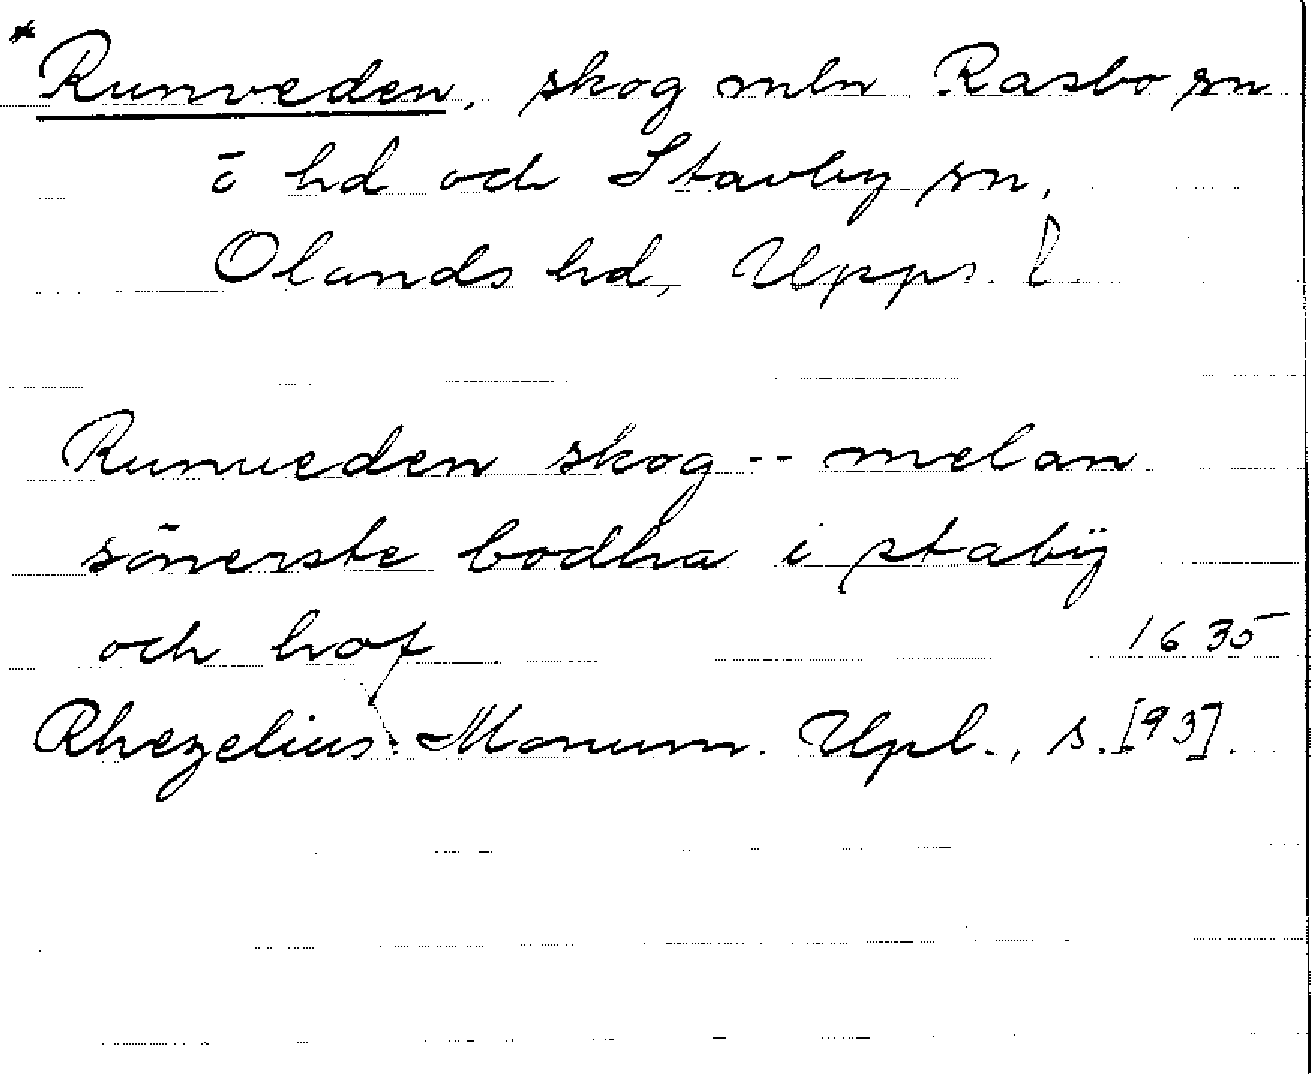 *Runveden, skog mln Rasbo sn
ō hd och Stavby sn,
Olands hd, Upps. l.
Runueden skog -- melan
sönerste bodha i stabÿ
och hof 1635
Rhezelius: Monum. Upl., s. [93].